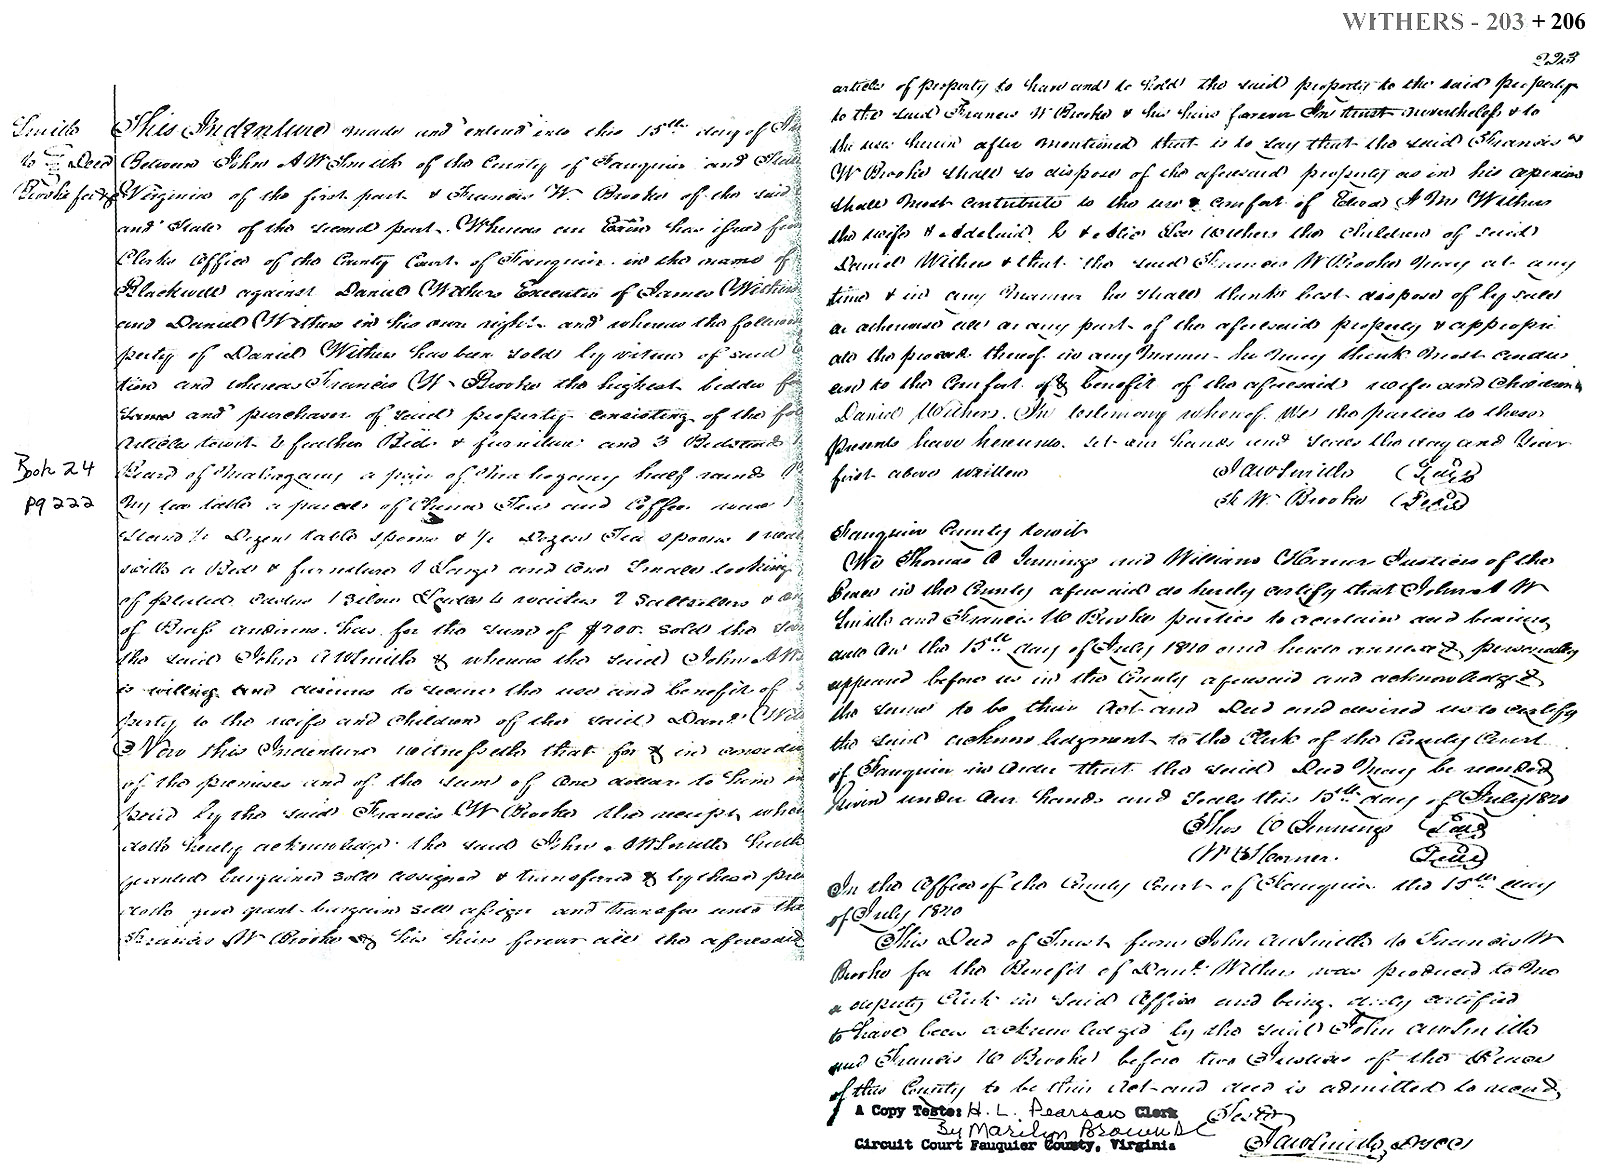 WITHERS - 203 + 206
223
Smith
to Deed
Brooke
Book 24
pg 222
This Indenture made and entered into this 15th day of
Between John A W Smith of the County of Fauquier and State
Virginia of the first part & Francis W. Brooke of the said
and State of the second part. Whereas an Exon has issued from
Clerks Office of the County Court of Fauquier in the name of
Blackwell against Daniel Withers Executor of James Withers
and Daniel Withers in his own right and whereas the follow
perty of Daniel Withers has been sold by virtue of said
tion and whereas Francis W Brooke the highest bidder for
same and purchaser of said property consisting of the fol
Articles towit 2 feather Beds & furniture and 3 Bedsteads
Board of Mahogany a pair of Mahogany half round
tea table a parcel of China Tea and Coffee
Stand ½ Dozen table spoons & ½ Dozen Tea spoons 1
a Bed & furniture 1 Large and one Small looking
of plated castors 1 Silver Ladle 4 waiters 2 Saltcellars &
of Brass andirons has for the sum of $700 sold the
the said John A W Smith & whereas the said John A W
is willing and desirous to secure the use and benefit of
perty to the wife and children of the said Danl. With
Now this Indenture witnesseth that for & in consider
of the premises and of the sum of one dollar to him in
paid by the said Francis W Brooke the receipt where
doth hereby acknowledge the said John A W Smith hath
granted bargained sold assigned & transferred & by these pre
doth give grant bargain sell assign and transfer unto the
Francis W Brooke & his heirs forever all the aforesaid
articles of property to have and to hold the said property to the said property
to the said Francis W Brooke & his heirs forever In trust nevertheless & to
the use herein after mentioned that is to say that the said Francis
W Brooke shall so dispose of the aforesaid property as in his opinion
shall most contribute to the use & comfort of Withers
the wife & Adelaid & Withers the children of said
Daniel Withers & that the said Francis W Brooke may at any
time & in any manner he shall think best dispose of by sale
or otherwise all or any part of the aforesaid property & appropri
ate the proceeds thereof in any manner he may think most condu
cive to the comfort of & benefit of the aforesaid wife and children
Daniel Withers. In testimony whereof We the parties to these
presents have hereunto set our hands and seals the day and Year
first above written J A W Smith (Seal)
F. W. Brooke (Seal)
Fauquier County towit
We Thomas O Jennings and William Horner Justices of the
Peace in the County aforesaid do hereby certify that John A W
Smith and Francis W Brooke parties to a certain deed bearing
date on the 15th day of July 1820 and hereto annexed, personally
appeared before us in the County aforesaid and acknowledged
the same to be their Act and Deed and desired us to certify
the said acknowledgment to the Clerk of the County Court
of Fauquier in order that the said Deed may be recorded
Given under our hands and seals this 15th day of July 1820
Thos O Jennings (Seal)
Wm Horner. (Seal)
In the Office of the County Court of Fauquier the 15th day
of July 1820
This Deed of Trust from John A W Smith to Francis W
Brooke for the Benefit of Danl. Withers was produced to me
a deputy Clerk in said Office and being duly certified
to have been acknowledged by the said John A W Smith
and Francis W Brooke before two Justices of the Peace
of this County to be their Act and deed is admitted to record
A Copy Teste: H. L. Pearson Clerk
By Marilyn Brown D C
Circuit Court Fauquier County, Virginia
Teste
J A W Smith,